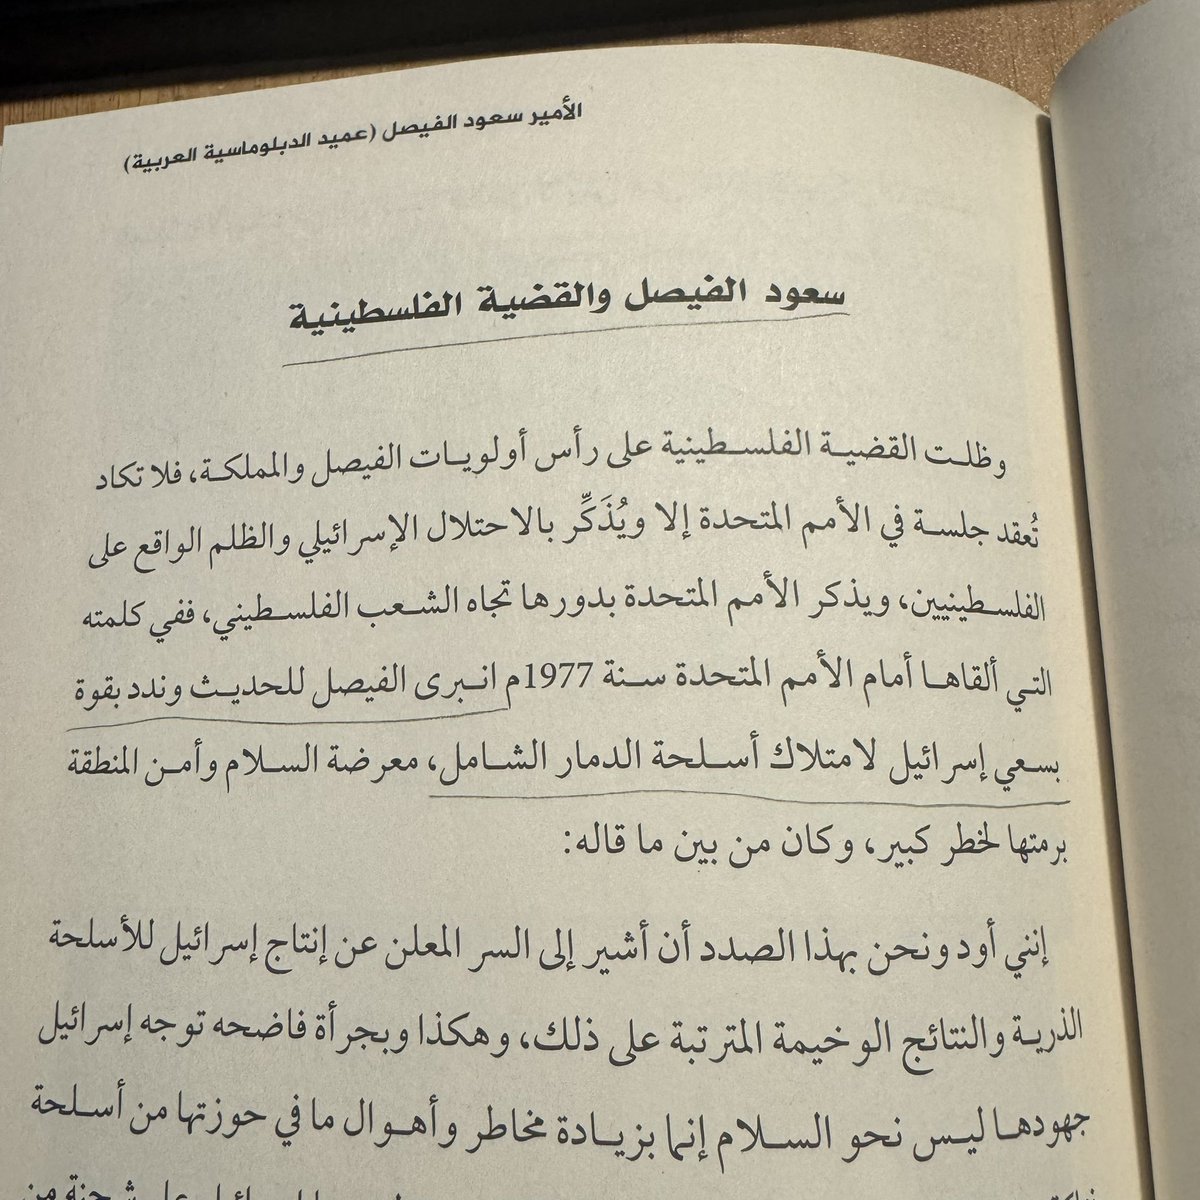 الأمير سعود الفيصل (عميد الدبلوماسية العربية)
سعود الفيصل والقضية الفلسطينية
وظلت القضية الفلسطينية على رأس أولويات الفيصل والمملكة، فلا تكاد
تُعقد جلسة في الأمم المتحدة إلا ويُذَكِّر بالاحتلال الإسرائيلي والظلم الواقع على
الفلسطينيين، ويذكر الأمم المتحدة بدورها تجاه الشعب الفلسطيني، ففي كلمته
التي ألقاها أمام الأمم المتحدة سنة 1977م انبرى الفيصل للحديث وندد بقوة
بسعي إسرائيل لامتلاك أسلحة الدمار الشامل، معرضة السلام وأمن المنطقة
برمتها لخطر كبير، وكان من بين ما قاله:
إنني أود ونحن بهذا الصدد أن أشير إلى السر المعلن عن إنتاج إسرائيل للأسلحة
الذرية والنتائج الوخيمة المترتبة على ذلك، وهكذا وبجرأة فاضحه توجه إسرائيل
جهودها ليس نحو السلام إنما بزيادة مخاطر وأهوال ما في حوزتها من أسلحة